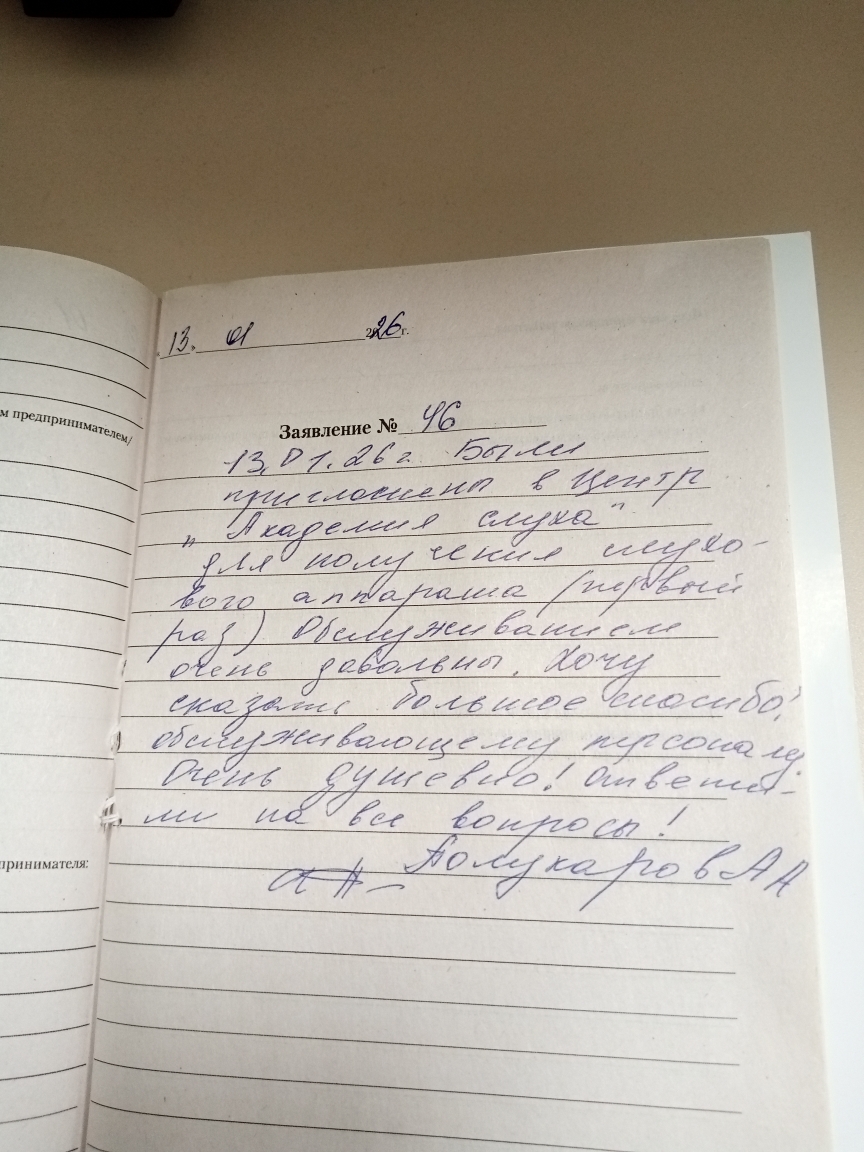 м предпринимателем/
принимателя:
„13.“ 01 2026г.
Заявление № 46
13.01.26г. Были
приглашены в Центр
„Академия слуха"
для получения слухо-
вого аппарата (первый
раз) Обслуживанием
очень довольны. Хочу
сказать большое спасибо!
обслуживающему персоналу
Очень душевно! Ответи-
ли на все вопросы!
Полукаров А А